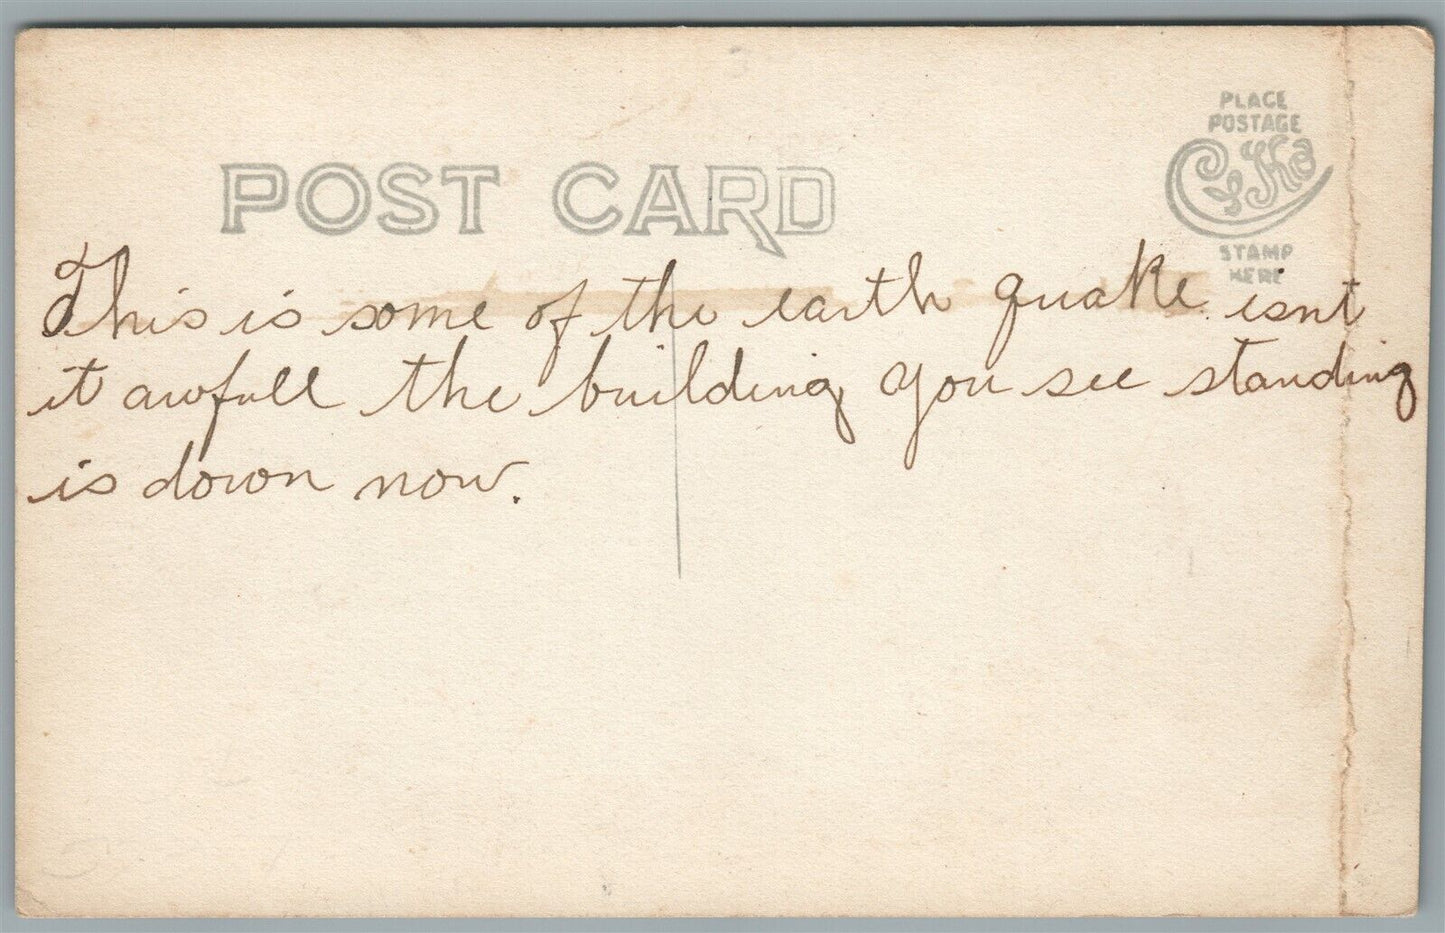 PLACE
POSTAGE
CYKO
STAMP
HERE
POST CARD
This is some of the earth quake isnt
it awfull the building you see standing
is down now.